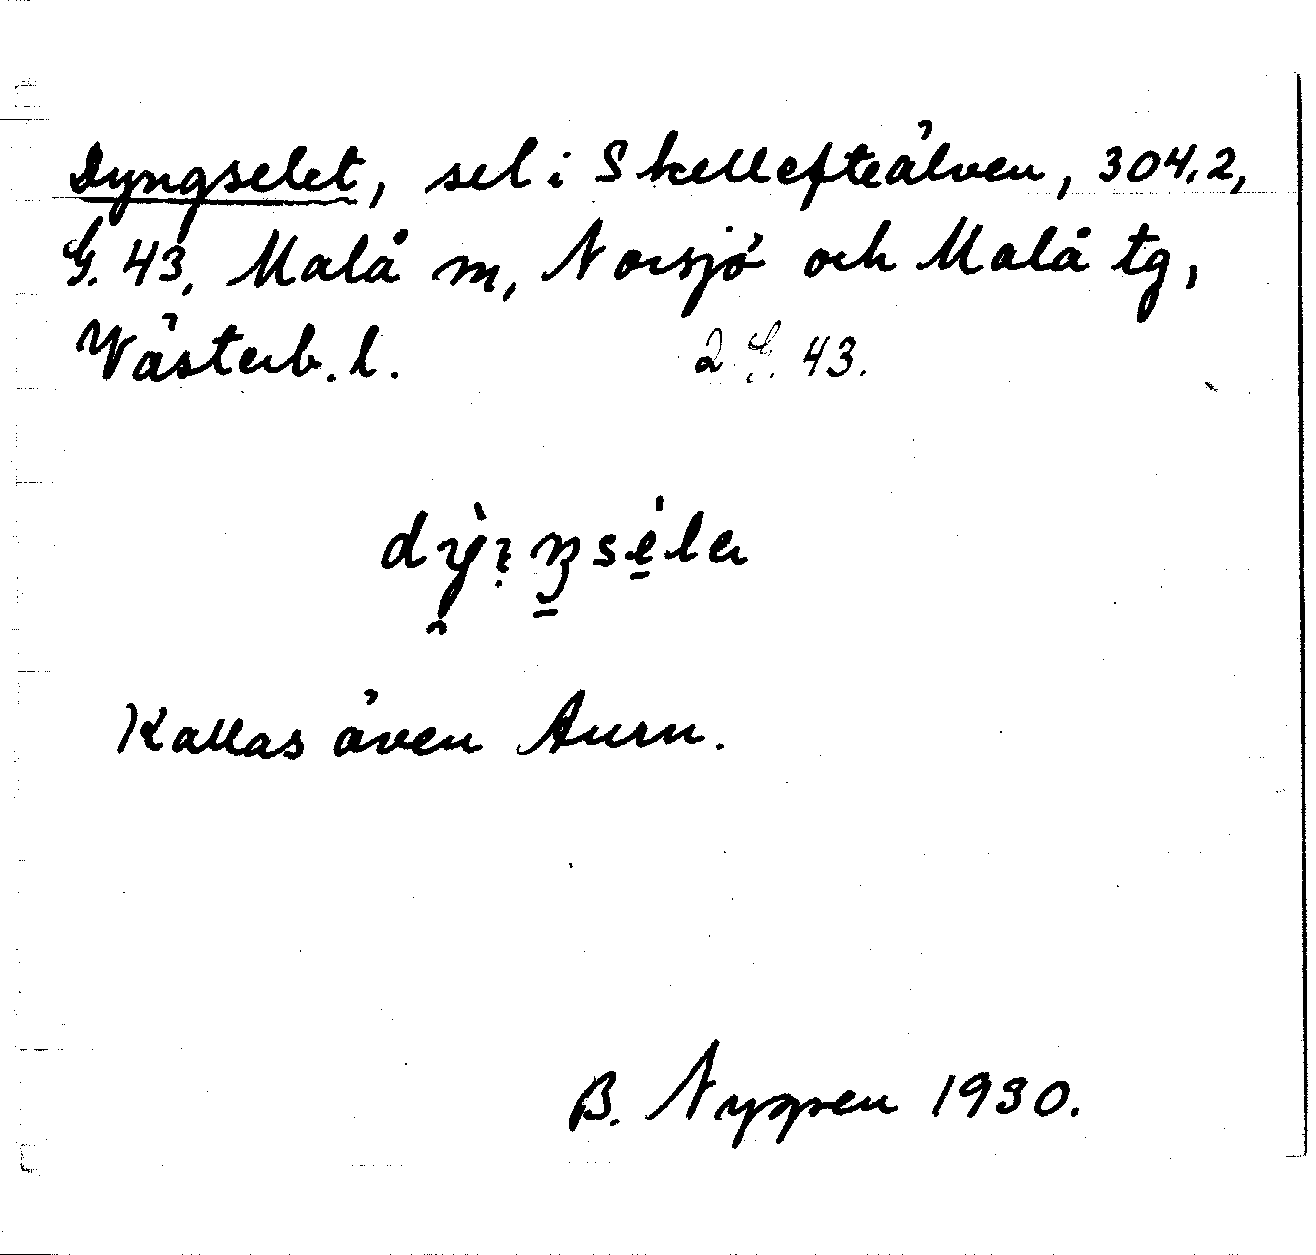 Dyngselet, sel i Skellefteälven, 304,2,
G. 43, Malå m, Norsjö och Malå tg,
Västerb. l.
2 G. 43.
Kallas även Aurn.
B. Nygren 1930.